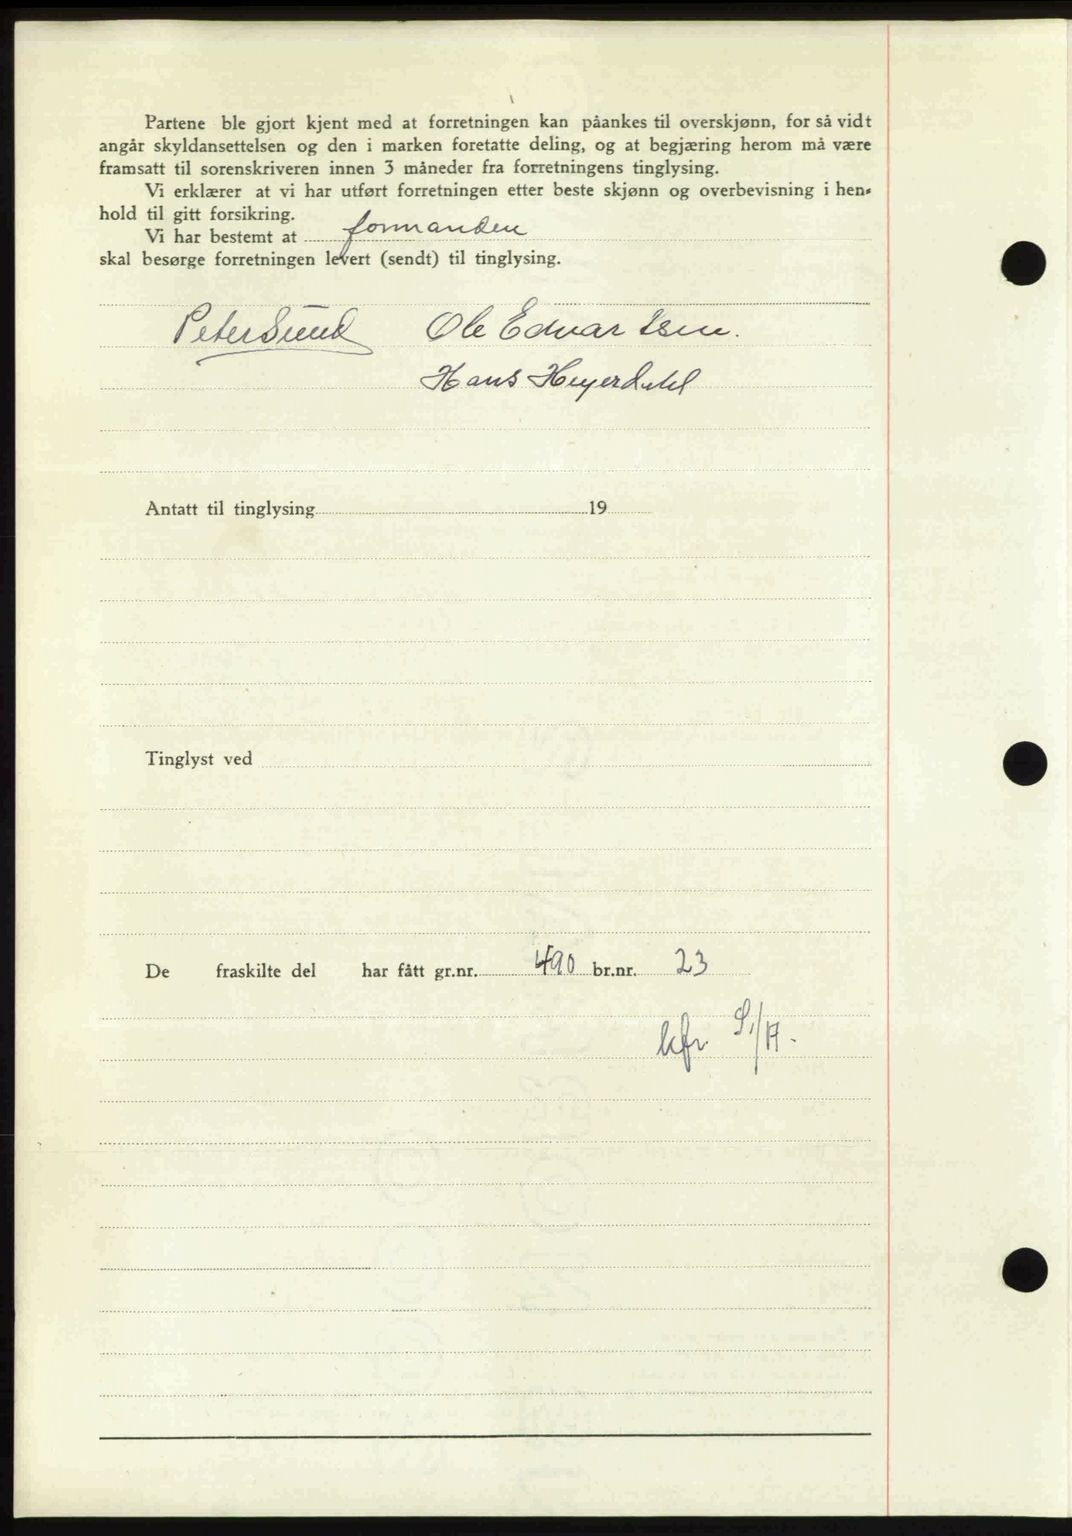 Partene ble gjort kjent med at forretningen kan påankes til overskjønn, for så vidt
angår skyldansettelsen og den i marken foretatte deling, og at begjæring herom må være
framsatt til sorenskriveren innen 3 måneder fra forretningens tinglysing.
Vi erklærer at vi har utført forretningen etter beste skjønn og overbevisning i hen-
hold til gitt forsikring.
Vi har bestemt at formanden
skal besørge forretningen levert (sendt) til tinglysing.
Peter Sund Ole Edvartsen.
Hans Heyerdahl
Antatt til tinglysing 19
Tinglyst ved
De fraskilte del har fått gr.nr. 490 br.nr. 23
kfr.